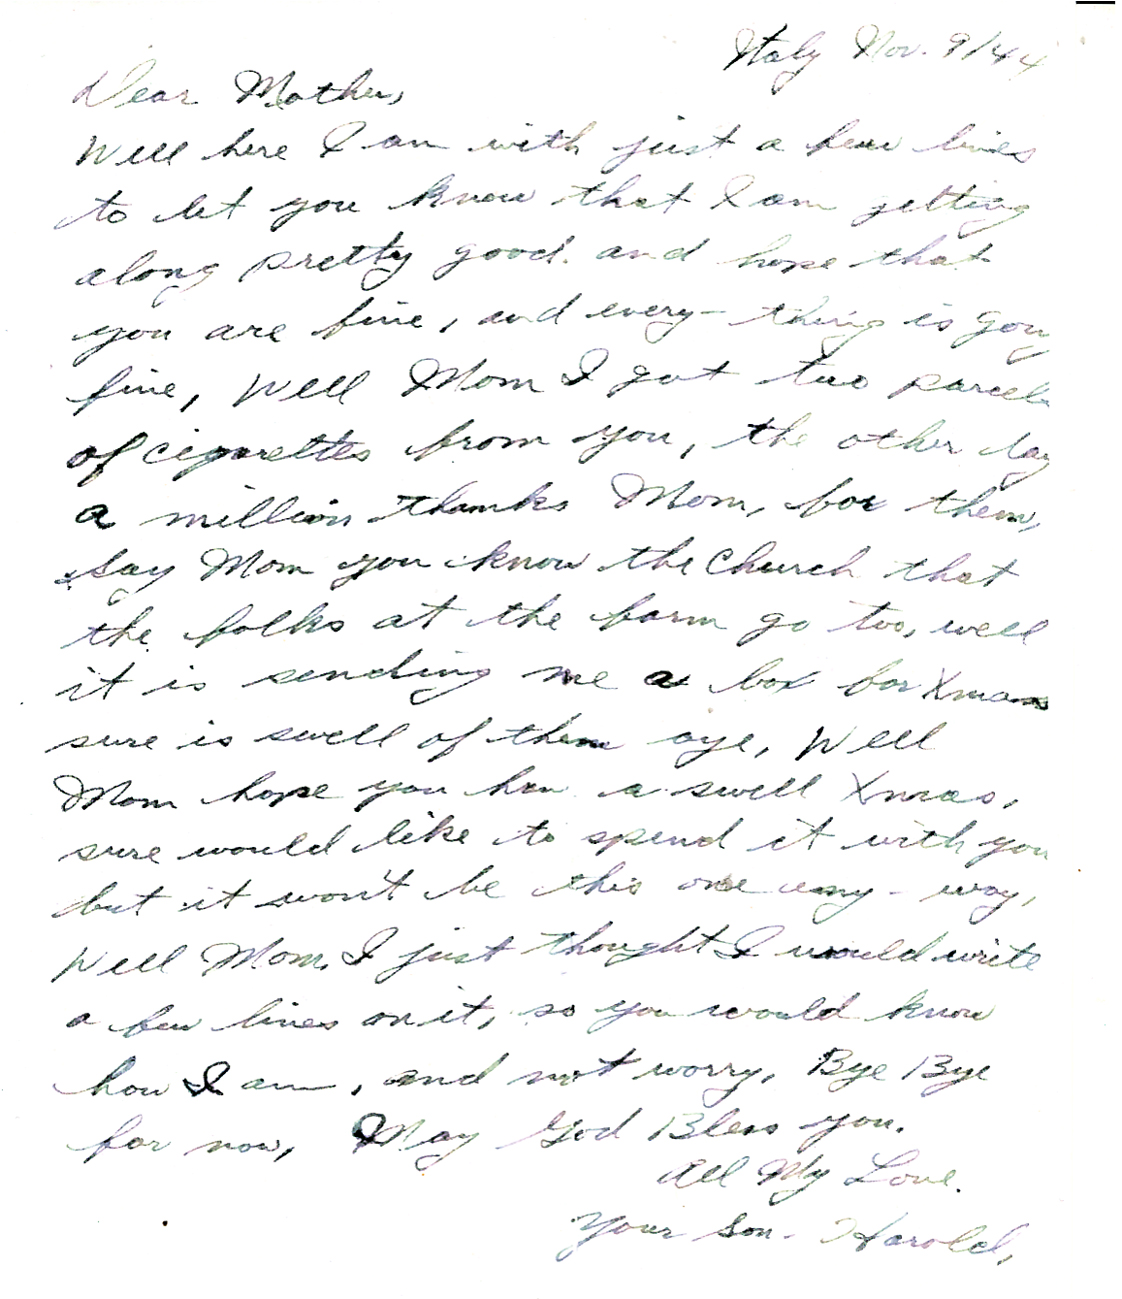 Italy Nov. 9/44
Dear Mother,
Well here I am with just a few lines
to let you know that I am getting
along pretty good. and hope that
you are fine, and every-thing is going
fine, Well Mom I got two parcels
of cigarettes from you, the other day
a million thanks Mom, for them,
say Mom you know the Church that
the folks at the farm go too, well
it is sending me a box for Xmas
sure is swell of them aye, Well
Mom hope you have a swell Xmas,
sure would like to spend it with you
but it won't be this one any-way,
Well Mom, I just thought I would write
a few lines on it, so you would know
how I am, and not worry, Bye Bye
for now, May God Bless you.
All My Love.
Your Son. Harold,